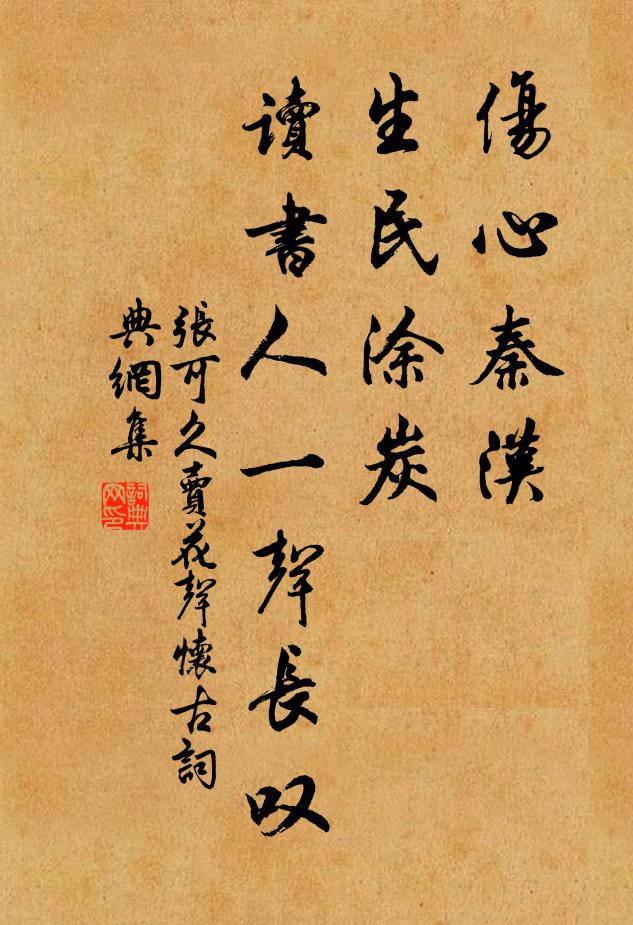 傷心秦漢
生民涂炭
讀書人一聲長叹
張可久賣花聲懷古詞
典網集
詞典
网印